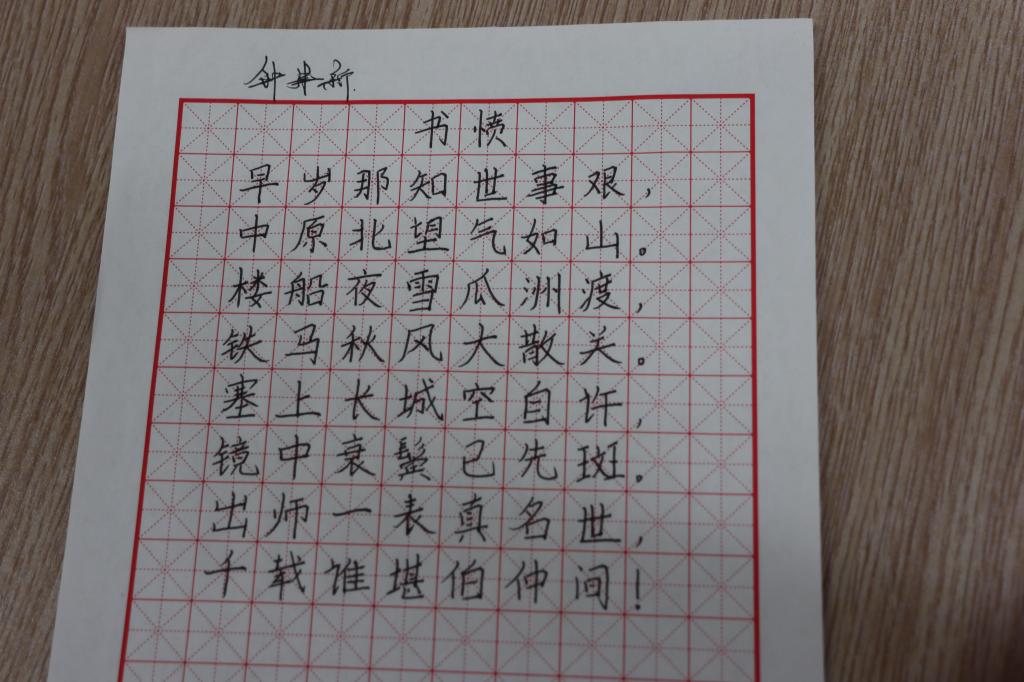 书愤
早岁那知世事艰，
中原北望气如山。
楼船夜雪瓜洲渡，
铁马秋风大散关。
塞上长城空自许，
镜中衰鬓已先斑。
出师一表真名世，
千载谁堪伯仲间！